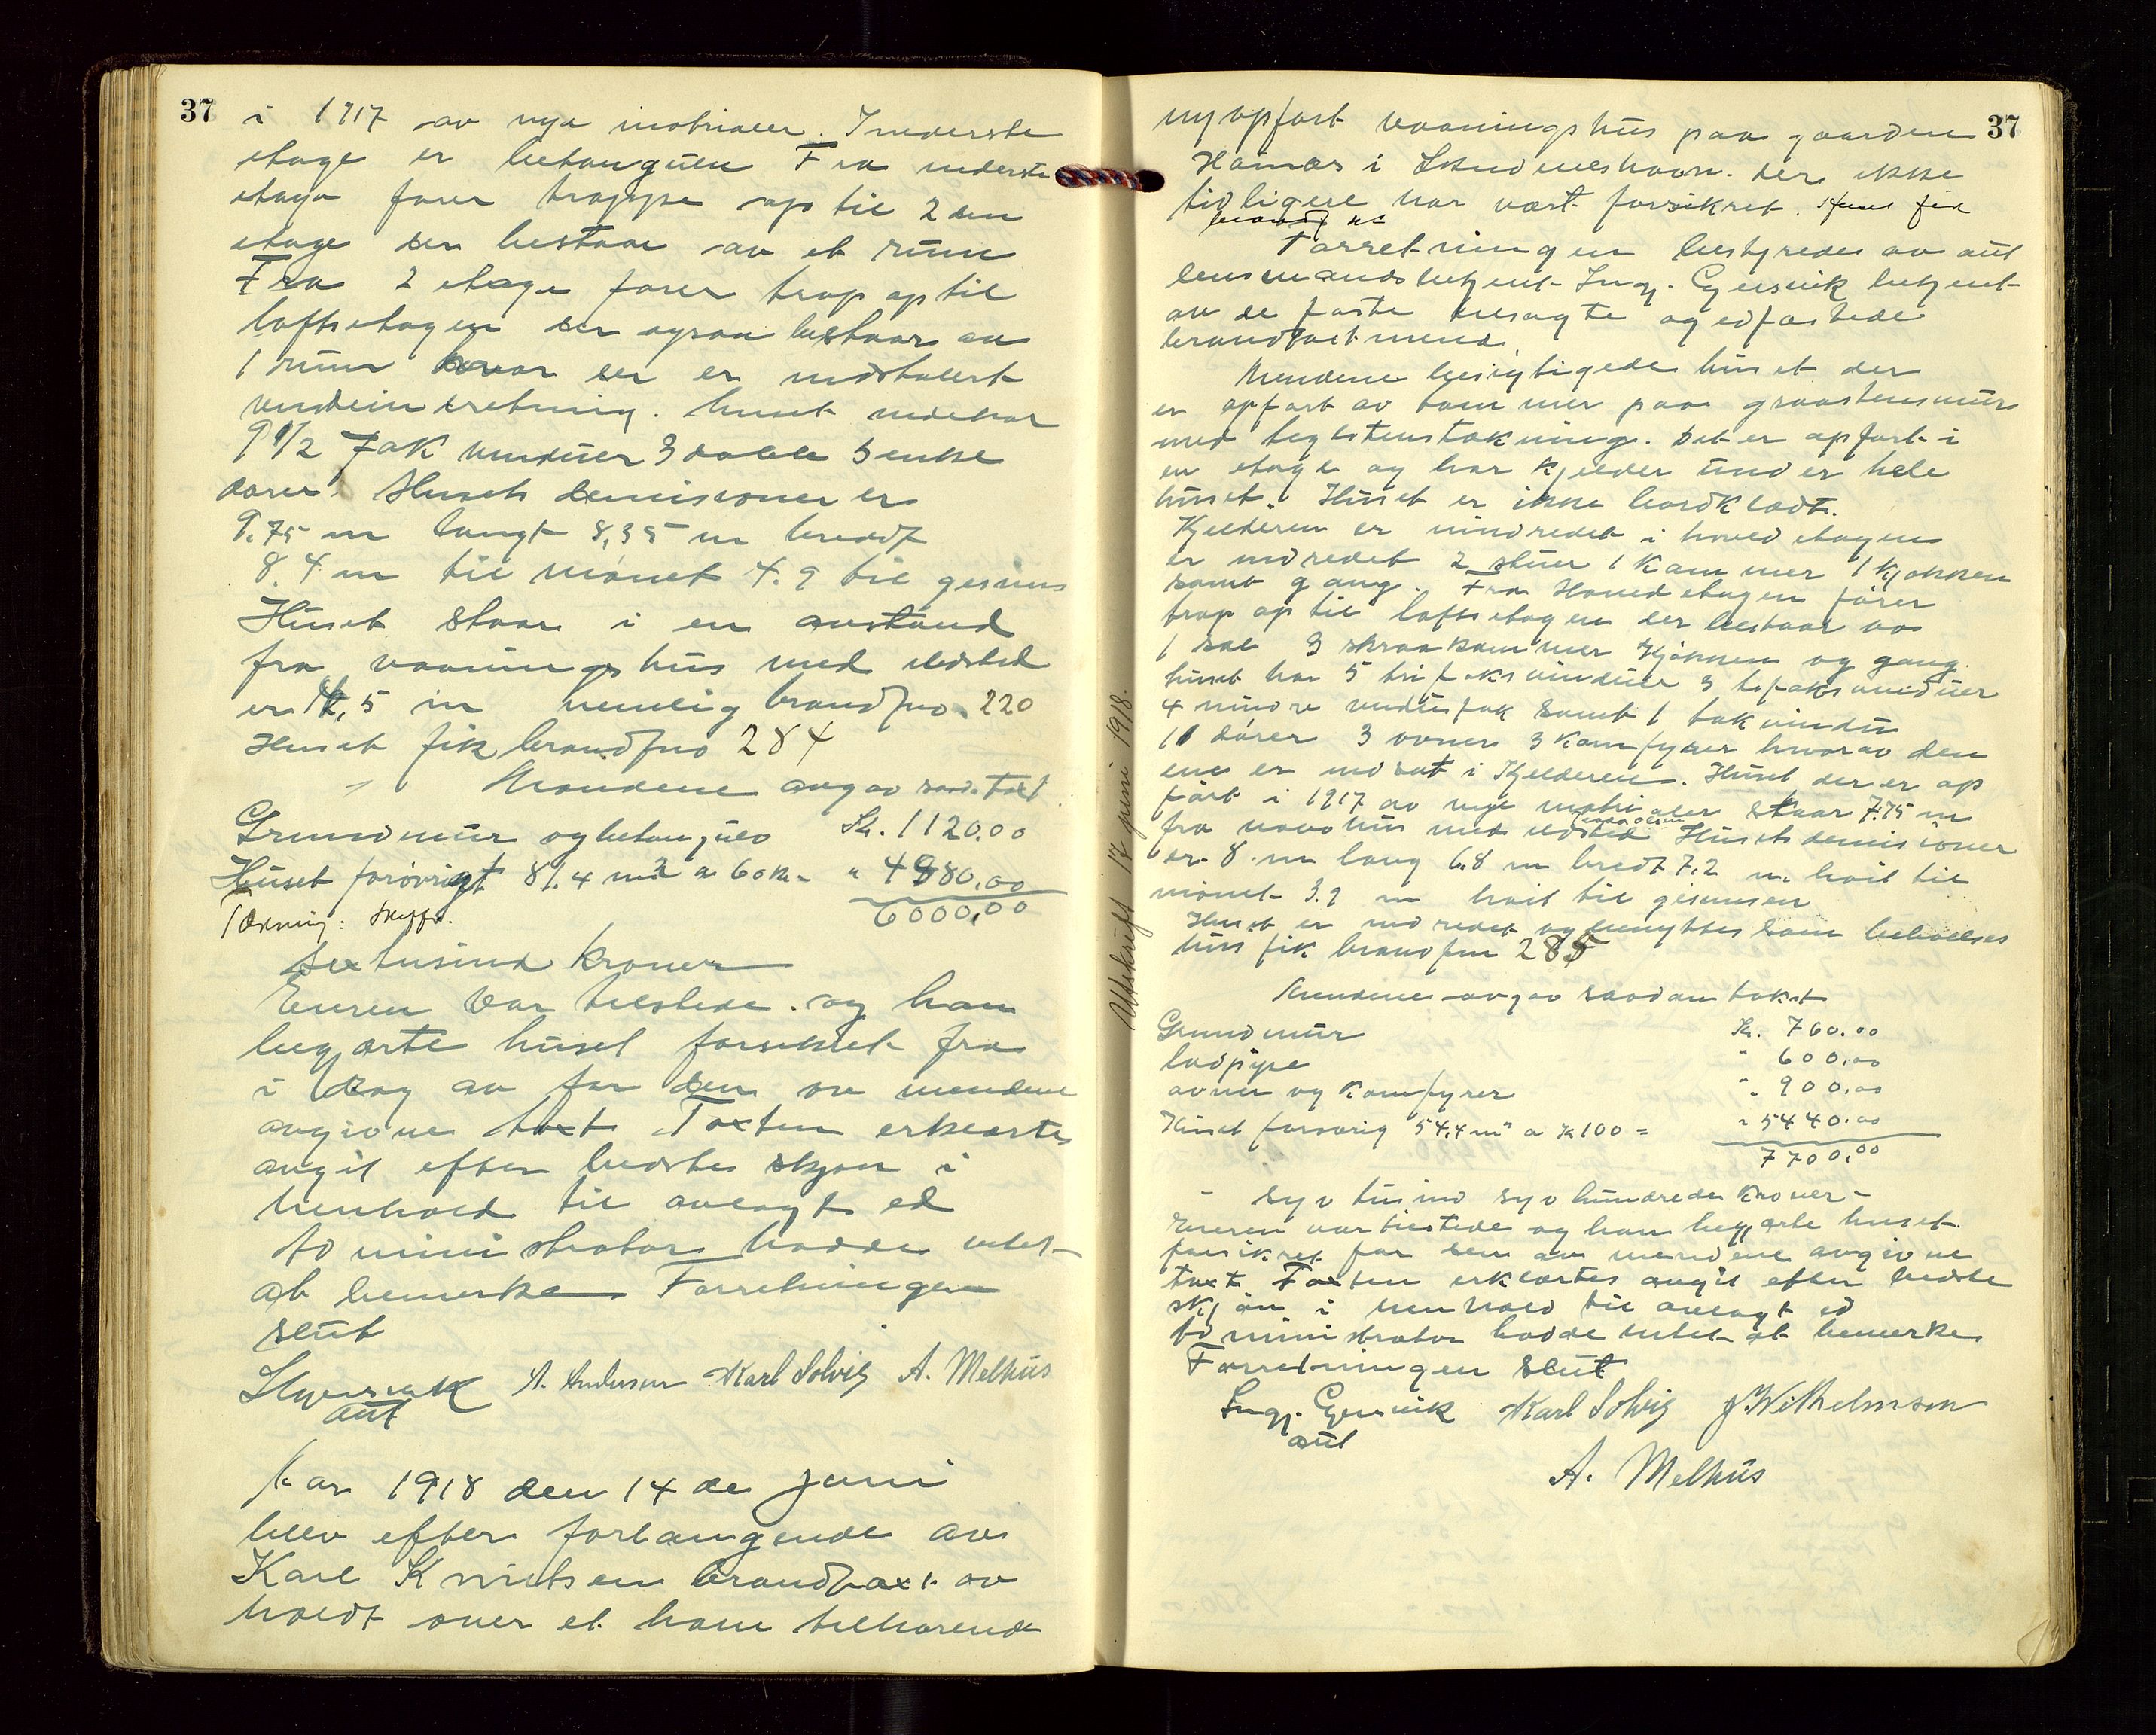 37
i 1917 av nye matrialer. I nederste
etage er betongulv Fra nederste
etage fører trappe op til 2 den
etage der bestaar av et rum
Fra 2 etage fører trap op til
loftsetagen der ogsaa bestaar av
1 rum hvor der er indstalert
vindeinretning. huset indehar
9 1/2 fak vinduer 3 doble 5 enkle
dører. Husets demisioner er
9.75 m langt 8,35 m bredt
8.4 m til mønet 4.9 til gesims
Huset staar i en avstand
fra vaaningshus med ildsted
er 14,5 m nemlig brandfno. 220
Huset fik brandfno 284
Mændene avgav saad. taxt
Grundmur og betongulv Kr. 1120.00
Huset forøvrigt 81.4 m2 a 60 kr = " 4880,00
Tækning: skiffer. 6000,00
sextusind kroner
Eieren var tilstede. og han
begjærte huset forsikret fra
i dag av for den av mendene
avgivne taxt Taxten erklærtes
avgit efter bedste skjøn i
henhold til avlagt ed
Administrator hadde intet
at bemerke Forretningen
slut
I Gjersvik A. Andersen Karl Solvig A. Melhus
aut
Aar 1918 den 14 de juni
blev efter forlangende av
Karl Knutsen brandtaxt av
holdt over et ham tilhørende
37
nyopført vaaningshus paa gaarden
Hamæs i Skudeneshavn. der ikke
tidligere har vært forsikret. Huset fik
brandf no
Forretningen bestyredes av aut
lensmandsbetjent Ingv. Gjersvik betjent
av de faste utsagte og edfæstede
brandtaxtmend.
Mendene besigtigede huset der
er opført av tømmer paa graastensmur
med teglstenstækning. Det er opført i
en etage og har kjelder under hele
huset. Huset er ikke bordklædt.
Kjelderen er uindredet i hovedetagen
er indredet 2 stuer 1 kammer 1 kjøkken
samt gang. Fra Hovedetagen fører
trap op til loftsetagen der bestaar av
1 sal 3 skraakammer kjøkken og gang.
huset har 5 trifaks vinduer 3 tofaks vinduer
4 mindre vindusfak samt 1 takvindu
11 dører 3 ovner 3 kamfyrer hvorav den
ene er indsat i Kjelderen. Huset der er op
ført i 1917 av nye matrialer staar 7.75 m
fra nabohus med ildsted Husets demisioner
er 8 m lang 6.8 m bredt 7.2 m. høit til
mønet 3.9 m høit til gesimsen
Huset er indredet og benyttes som beboelses
hus fik brandfno 285
Mendene avgav saadan takst
Grundmur Kr. 760.00
Ildpipe " 600.00
ovner og Komfyrer " 900.00
Huset forøvrig 54,4 m2 a Kr 100 = " 5440.00
7700,00
- syv tusind syv hundrede kroner -
Eieren var tilstede og han begjærte huset
forsikret for den av mendene avgivne
taxt. Taxten erklærtes avgit efter bedste
skjøn i henhold til avlagt ed
Administrator hadde intet at bemerke.
Forretningen slut
Ingv. Gjersvik Karl Solvig J Wilhelmsen
aut
A. Melhus
Utskrift 17 juni 1918.